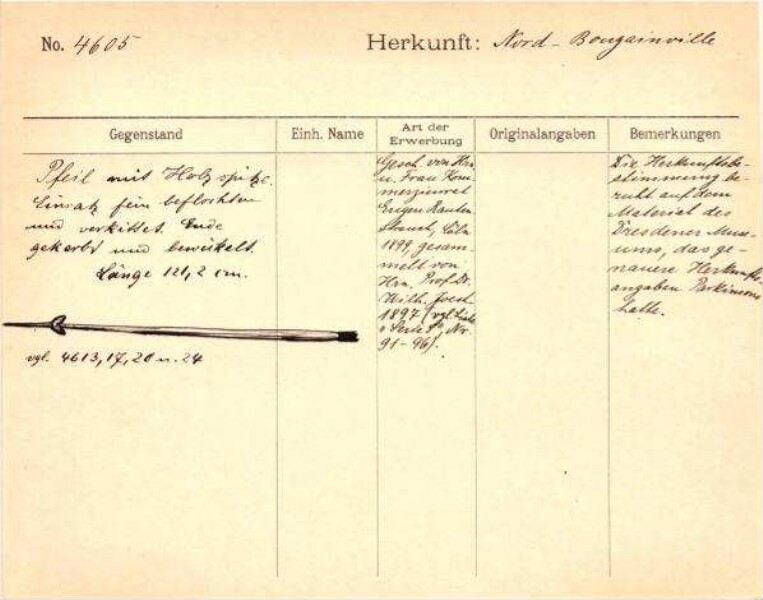 No. 4605
Herkunft: Nord-Bougainville
Gegenstand
Einh. Name
Art der Erwerbung
Originalangaben
Bemerkungen
Pfeil mit Holzspitze.
Einsatz fein beflochten
und verkittet. Ende
gekerbt und bewickelt.
Länge 121,2 cm.
vgl. 4613, 17, 20 u. 24
Gesch. von Hrn.
u. Frau Kom-
merzienrat
Eugen Rauten-
strauch, Cöln
1899, gesam-
melt von
Hrn. Prof. Dr.
Wilh. Joest
1897 (vgl. Liste
Nr.
91-96).
Die Herkunftsbe-
stimmung be-
ruht auf dem
Material des
Dresdener Muse-
ums, das ge-
nauere Herkunfts-
angaben Parkinsons
hatte.